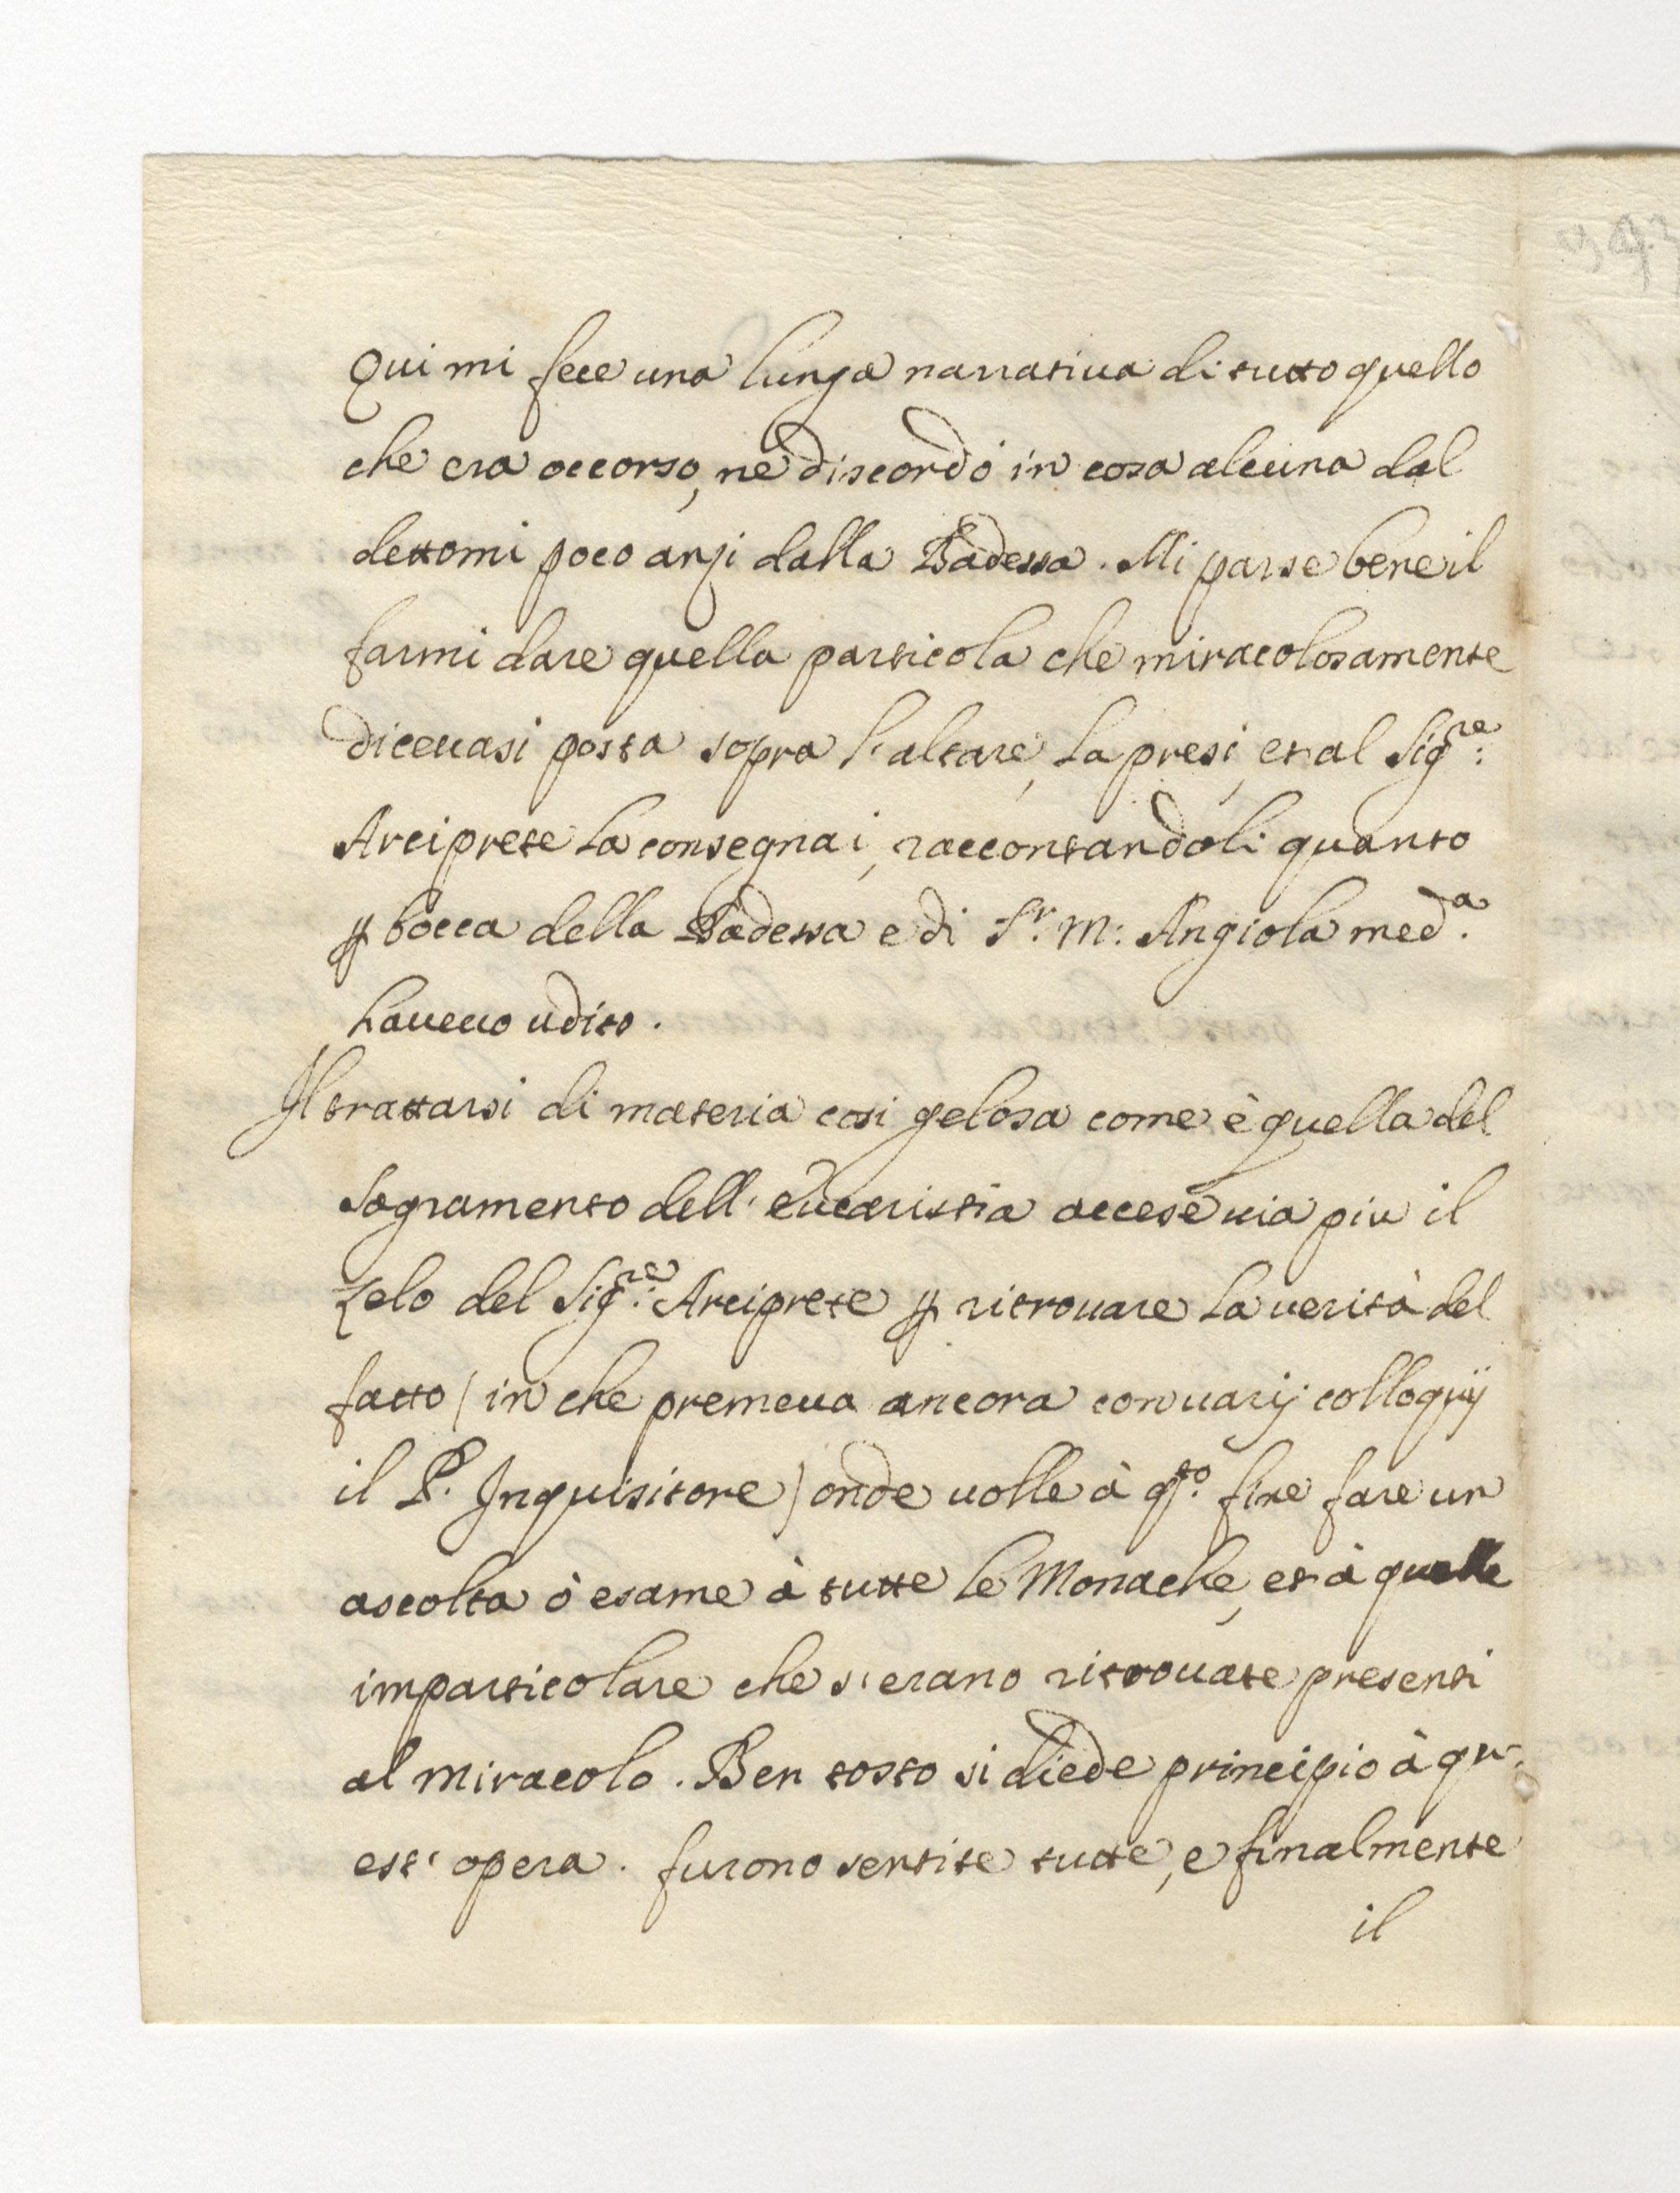 Qui mi fece una lunga narratiua di tutto quello
che era occorso, ne discordò in cosa alcuna dal
dettomi poco anzi dalla Badessa. Mi parse bene il
farmi dare quella particola che miracolosamente
diceuasi posta sopra l'altare, la presi, et al Sig.re:
Arciprete la consegnai, raccontandoli quanto
ꝑ bocca della Badessa e di S.r M: Angiola med.a
haueuo udito.
Il trattarsi di materia così gelosa come è quella del
Sagramento dell'eucaristia accese uia piu il
zelo del Sig.re: Arciprete ꝑ ritrouare la uerità del
fatto (in che premeua ancora con uarij colloquij
il P. Inquisitore) onde uolle à q.to fine fare un
ascolta ò esame à tutte le Monache, et à quelle
imparticolare che s'erano ritrouate presenti
al miracolo. Ben tosto si diede principio à qu-
est' opera. furono sentite tutte, e finalmente
il